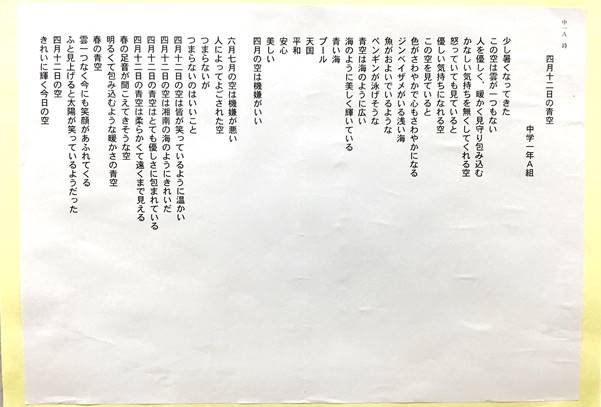 中一A 詩
四月十二日の青空
中学一年A組
少し暑くなってきた
この空は雲が一つもない
人を優しく、暖かく見守り包み込む
かなしい気持ちを無くしてくれる空
怒っていても見ていると
優しい気持ちになれる空
この空を見ていると
色がさわやかで心もさわやかになる
ジンベイザメがいる浅い海
魚がおよいでいるような
ペンギンが泳げそうな
青空は海のように広い
海のように美しく輝いている
青い海
プール
天国
平和
安心
美しい
四月の空は機嫌がいい
六月七月の空は機嫌が悪い
人によってよごされた空
つまらないが
つまらないのはいいこと
四月十二日の空は皆が笑っているように温かい
四月十二日の空は湘南の海のようにきれいだ
四月十二日の青空はとても優しさに包まれている
四月十二日の青空は柔らかくて遠くまで見える
春の足音が聞こえてきそうな空
明るくて包み込むような暖かさの青空
春の青空
雲一つなく今にも笑顔があふれてくる
ふと見上げると太陽が笑っているようだった
四月十二日の空
きれいに輝く今日の空